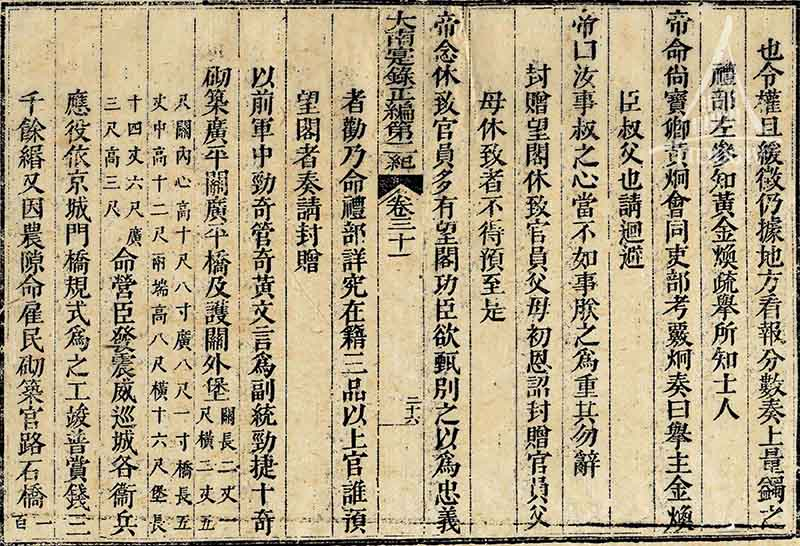 也令權且緩徵仍據地方看報分數奏上量蠲之
禮部左參知黃金煥疏舉所知士人
帝命尚寶卿黃炯會同吏部考覈炯奏曰舉主金煥
臣叔父也請迴避
帝曰汝事叔之心當不如事朕之為重其勿辭
封贈望閣休致官員父母初恩詔封贈官員父
母休致者不得預至是
帝念休致官員多有望閣功臣欲甄別之以為忠義
大南寔錄正編第二紀 卷三十一 二十六
者勸乃命禮部詳究在籍三品以上官誰預
望閣者奏請封贈
以前軍中勁奇管奇黃文言為副統勁捷十奇
砌築廣平關廣平橋及護關外堡關長二丈一尺橫三丈五
尺關內心高十尺八寸廣八尺一寸橋長五
丈中高十二尺兩端高八尺橫十六尺堡長
十四丈六尺廣三尺高三尺命營臣發震威巡城各衞兵
應役依京城門橋規式為之工竣普賞錢三
千餘緡又因農隙命雇民砌築官路石橋一百